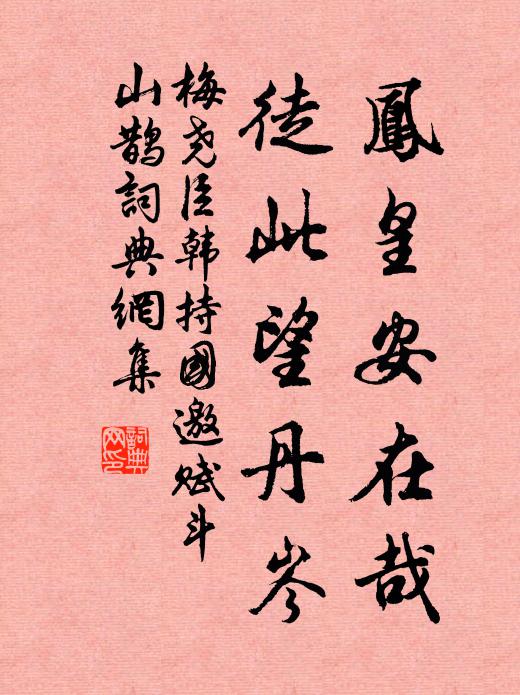 鳳皇安在哉
徒此望丹岑
梅尧臣韩持國邀赋斗
山鹊詞典網集
詞典
网印